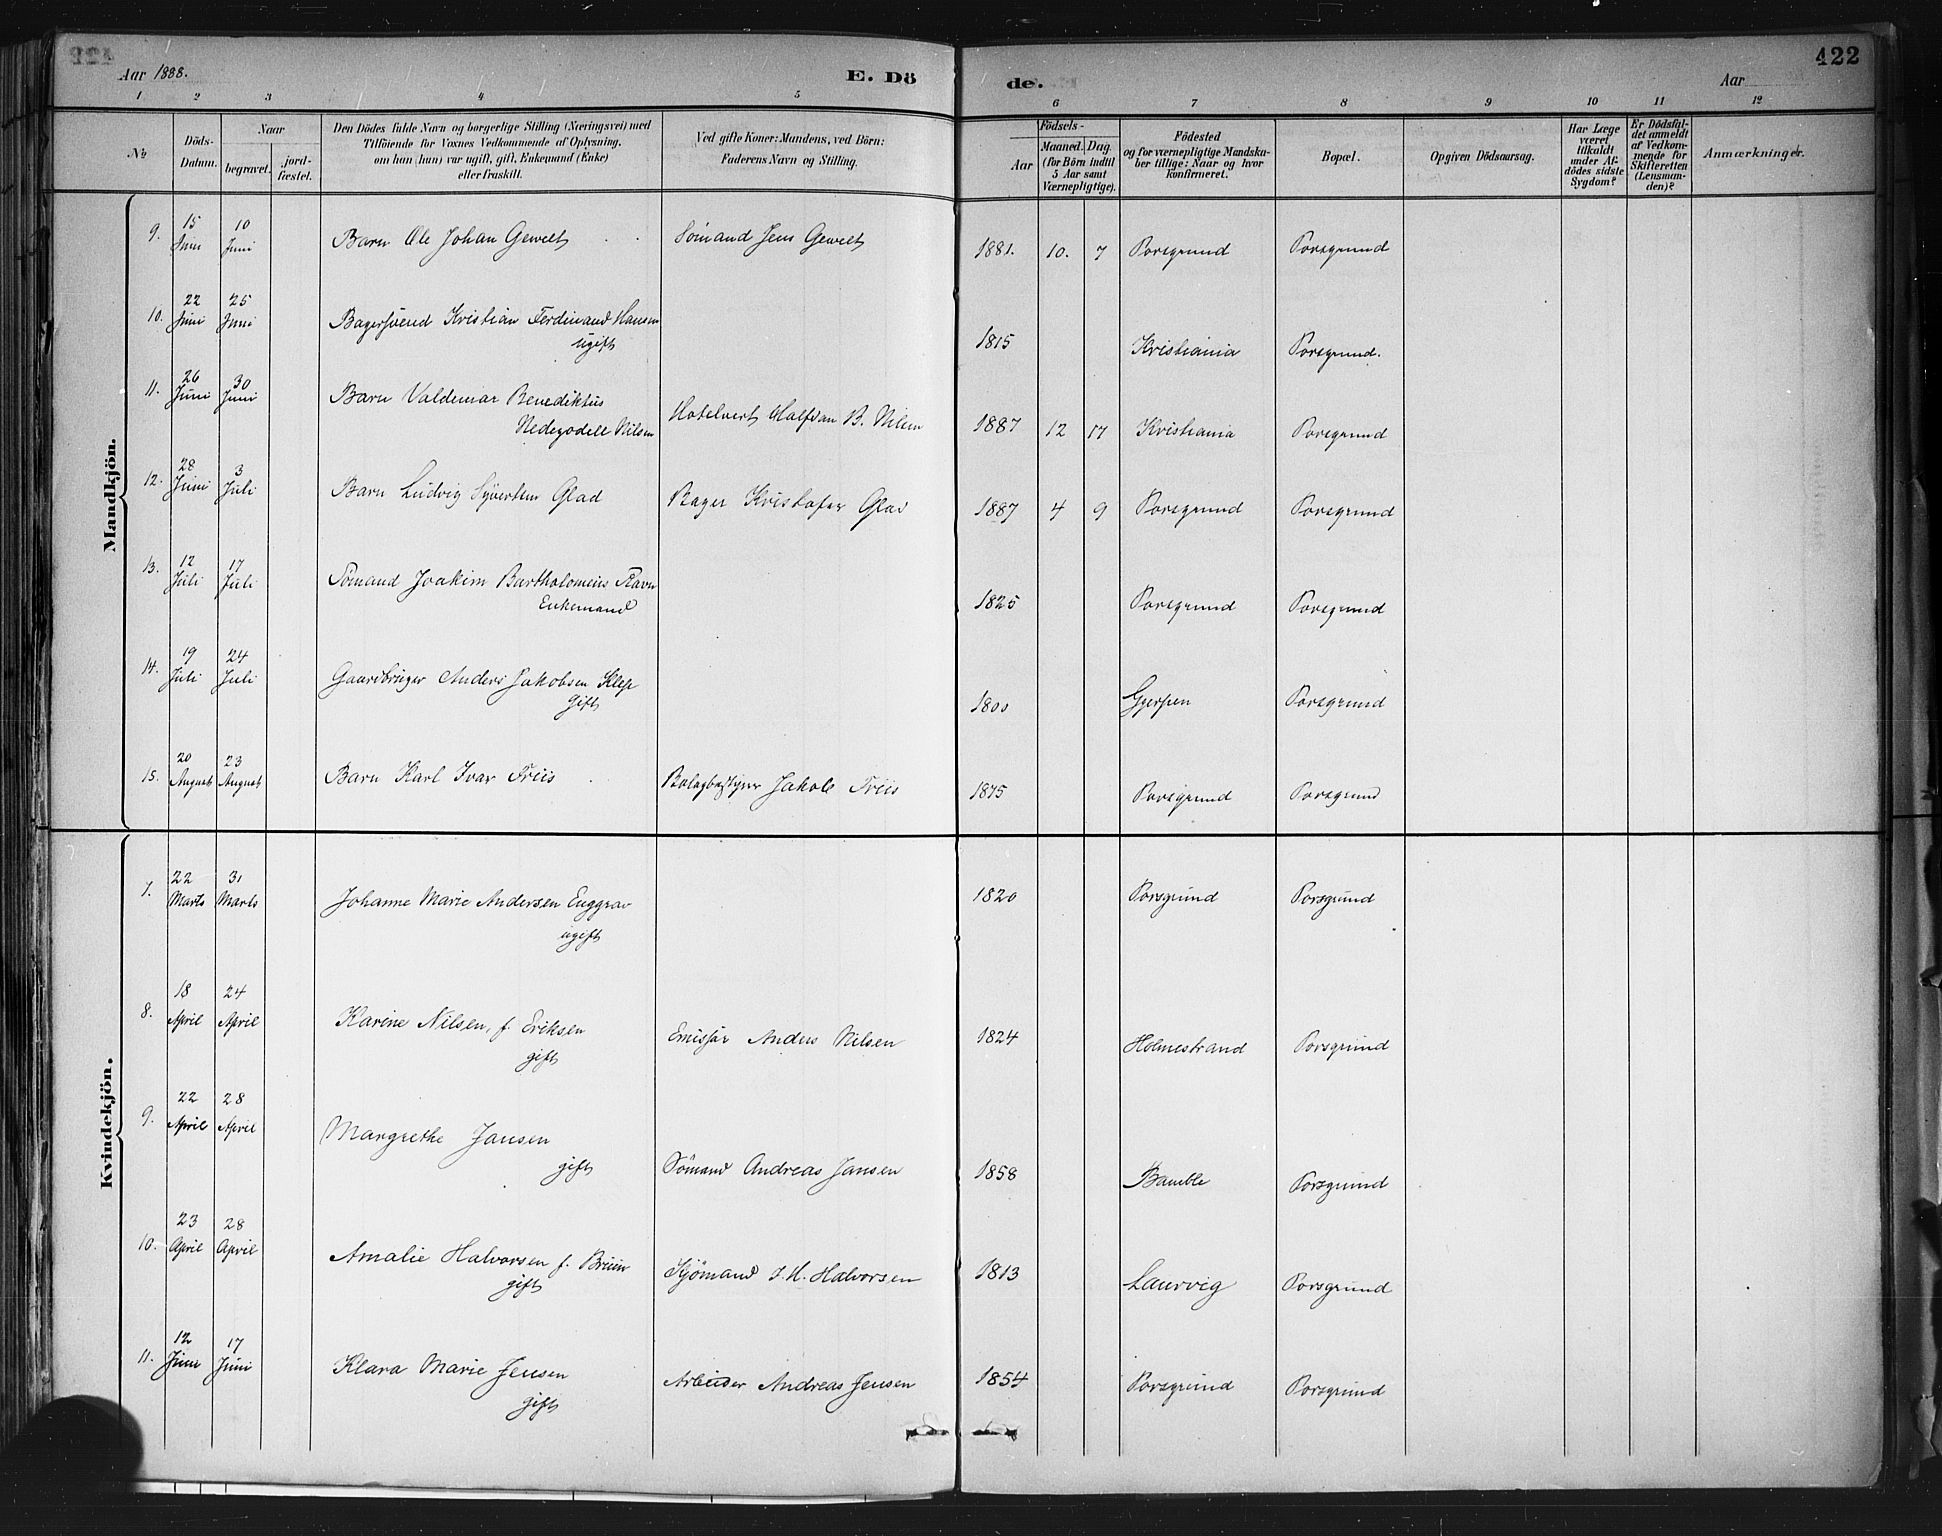 422
Aar 1888.
E. Dö
de.
Aar
422
1 2 3 4 5 6 7 8 9 10 11 12
№
Döds-
Datum.
Naar
begravet.
jord-
fæstet.
Den Dödes fulde Navn og borgerlige Stilling (Næringsvei) med
Tilföiende for Voxnes Vedkommende af Oplysning,
om han (hun) var ugift, gift, Enkemand (Enke)
eller fraskilt.
Ved gifte Koner: Mandens, ved Börn:
Faderens Navn og Stilling.
Födsels-
Aar
Maaned. Dag.
(for Börn indtil
5 Aar samt
Værnepligtige).
Födested
og for værnepligtige Mandska-
ber tillige: Naar og hvor
konfirmeret.
Bopæl.
Opgiven Dödsaarsag.
Har Læge
været
tilkaldt
under Af-
dödes sidste
Sygdom?
Er Dödsfal-
det anmeldt
af Vedkom-
mende for
Skifteretten
(Lensman-
den)?
Anmærkninger.
Mandkjön.
9. 15 Juni 10 Juni Barn Ole Johan Gewelt Sømand Jens Gewelt 1881. 10. 7 Porsgrund Porsgrund
10. 22 Juni 25 Juni Bagersvend Kristian Ferdinand Hansen
ugift 1815 Kristiania Porsgrund.
11. 26 Juni 30 Juni Barn Valdemar Benediktus
Nilsen Hotelvert Halfdan B. Nilsen 1887 12 17 Kristiania Porsgrund
12. 28 Juni 3 Juli Barn Ludvig Syvertsen Glad Bager Kristofer Glad 1887 4 9 Porsgrund Porsgrund
13. 12 Juli 17 Juli Sømand Joakim Bartholomeus Ravn
Enkemand 1825 Porsgrund Porsgrund
14. 19 Juli 24 Juli Gaardbruger Anders Jakobsen Klep
gift 1800 Gjerpen Porsgrund
15. 20 August 23 August Barn Karl Ivar Friis Jakob Friis 1875 Porsgrund Porsgrund
Kvindekjön.
7. 22 Marts 31 Marts Johanne Marie Andersen Enggrav
ugift 1820 Porsgrund Porsgrund
8. 18 April 24 April Karine Nilsen, f. Eriksen
gift Emissær Anders Nilsen 1824 Holmestrand Porsgrund
9. 22 April 28 April Margrethe Jansen
gift Sømand Andreas Jansen 1858 Bamble Porsgrund
10. 23 April 28 April Amalie Halvorsen f. Bruun
gift Sjømand J. H. Halvorsen 1813 Laurvig Porsgrund
11. 12 Juni 17 Juni Klara Marie Jensen
gift Arbeider Andreas Jensen 1854 Porsgrund Porsgrund